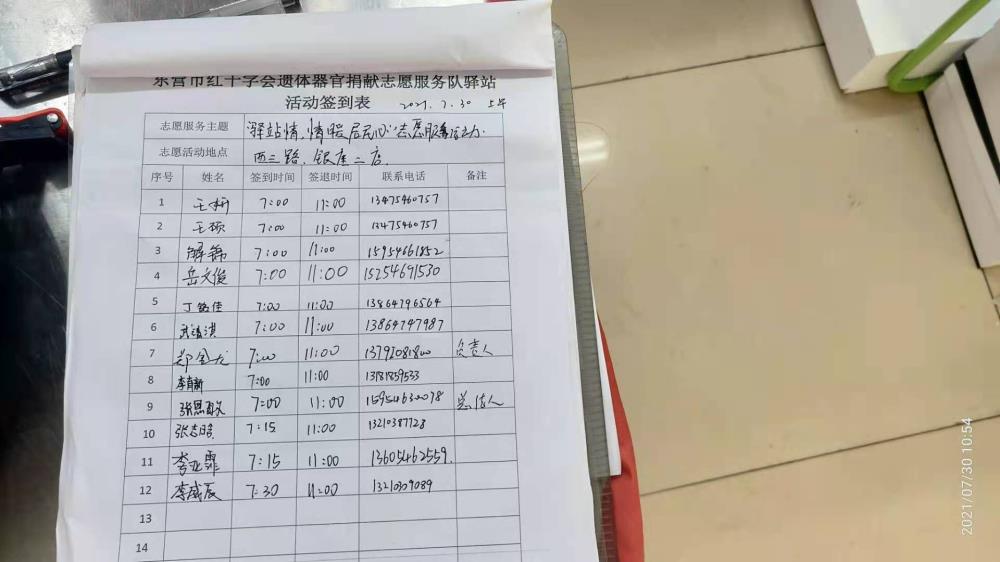 东营市红十字会遗体器官捐献志愿服务队驿站
活动签到表 2021.7.30 上午
志愿服务主题 驿站情,情暖居民心"志愿服务活动.
志愿活动地点 西三路、银座二店.
序号 姓名 签到时间 签退时间 联系电话 备注
1 7:00 11:00 13475460757
2 王硕 7:00 11:00 13475460757
3 解锦 7:00 11:00 15954661852
4 岳文俊 7:00 11:00 15254691530
5 丁铭佳 7:00 11:00 13864796564
6 7:00 11:00 13864747987
7 郑金龙 7:00 11:00 负责人
8 7:00 11:00 13181859533
9 7:00 11:00 15954630078
10 张志晧 7:15 11:00 13210387728
11 李亚霏 7:15 11:00 13605462559.
12 李威辰 7:30 11:00 13210309089
13
14
2021/07/30 10:54